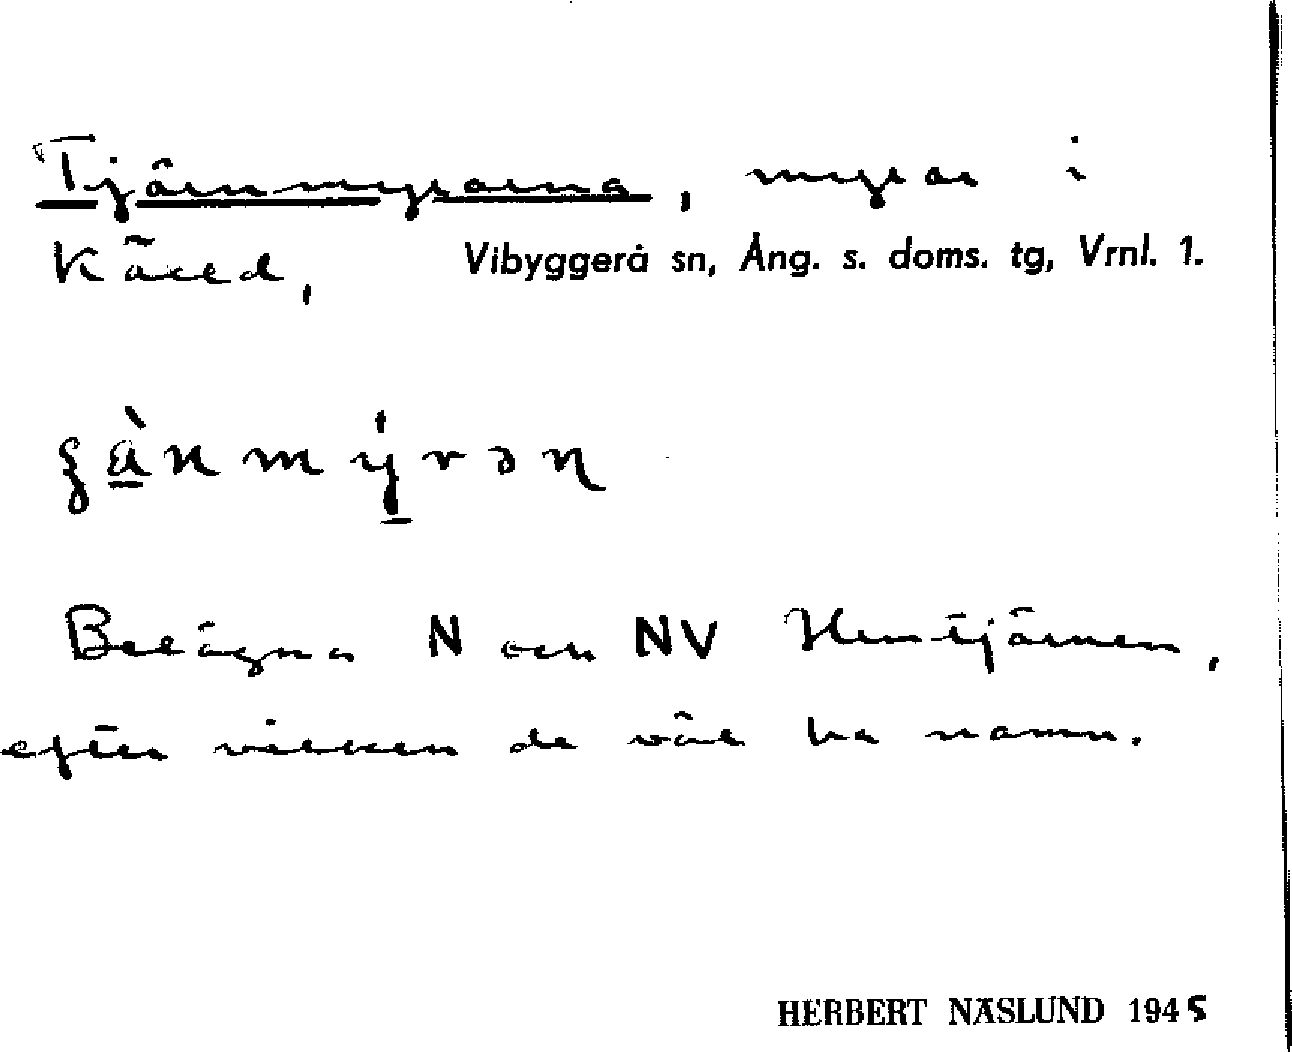 Tjärnmyrarna, myrar i
Käxed, Vibyggerå sn, Ång. s. doms. tg, Vrnl. 1.
Belägna N om NV Hemtjärnen,
efter vilken de väl ha namn.
HERBERT NÄSLUND 1945